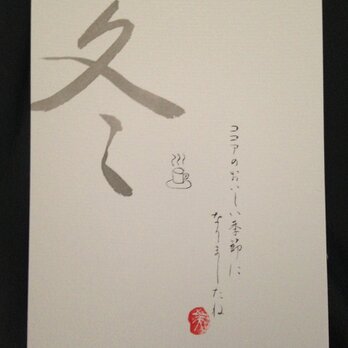 冬
ココアのおいしい季節に
なりましたね